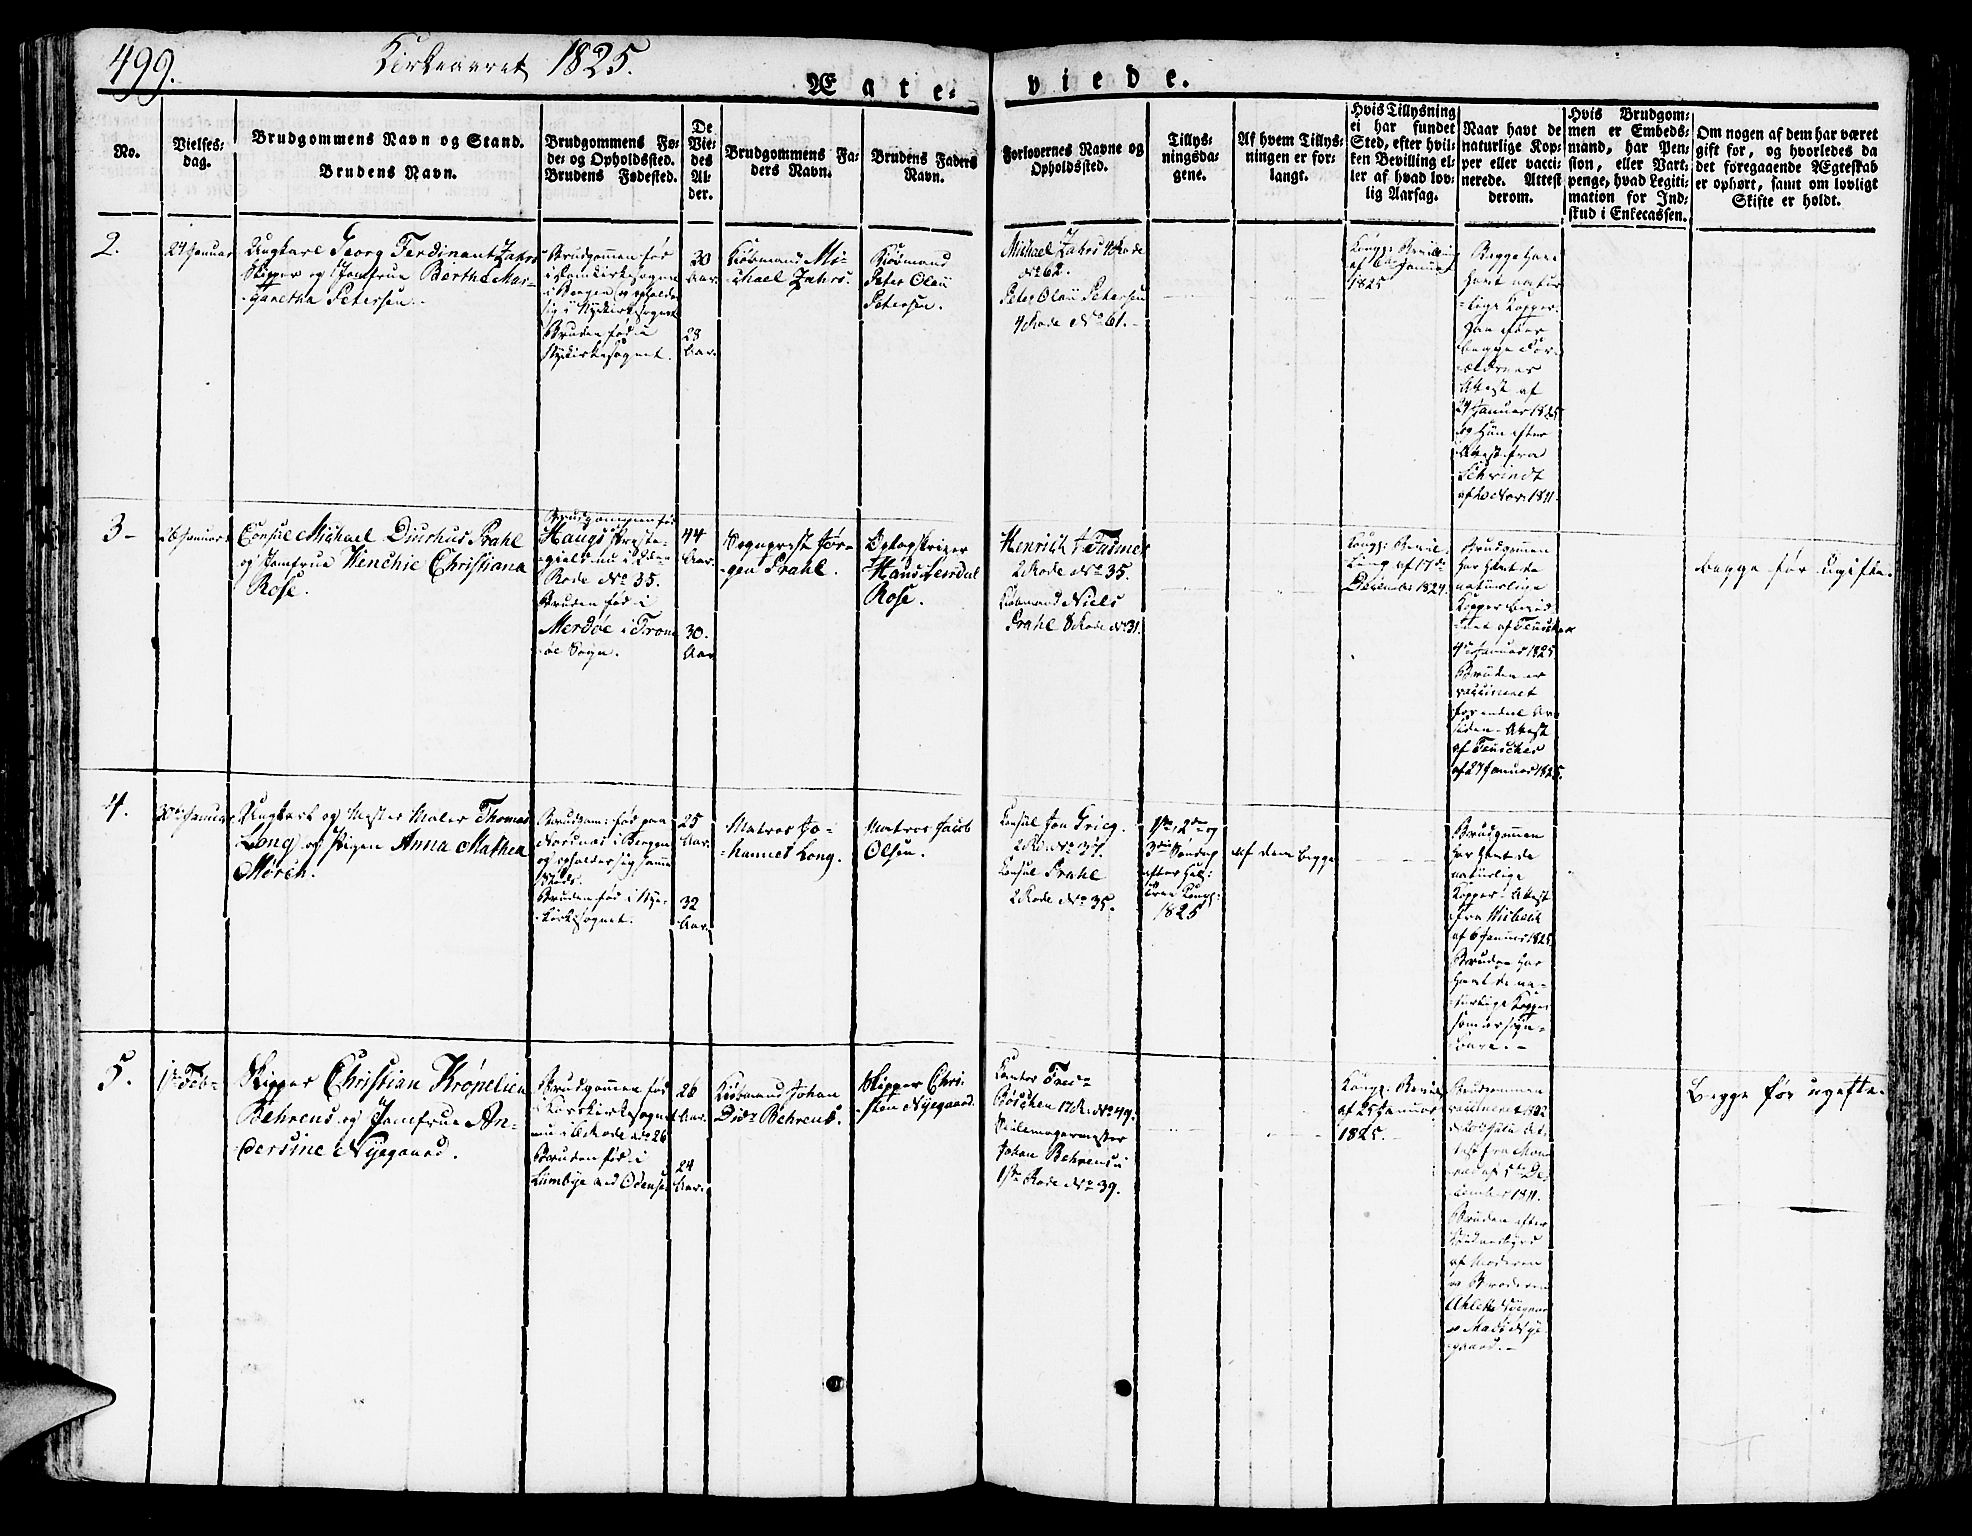 499.
Kirkeaaret 1825.
Ægte-
viede.
No.
Vielses-
dag.
Brudgommens Navn og Stand.
Brudens Navn.
Brudgommens Fø-
de- og Opholdssted.
Brudens Fødested.
De
Vie-
des
Al-
der.
Brudgommens Fa-
ders Navn.
Brudens Faders
Navn.
Forlovernes Navne og
Opholdssted.
Tillys-
ningsda-
gene.
Af hvem Tillys-
ningen er for-
langt.
Hvis Tillysning
ei har fundet
Sted, efter hvil-
ken Bevilling el-
ler af hvad lov-
lig Aarsag.
Naar havt de
naturlige Kop-
per eller vacci-
nerede. Attest
derom.
Hvis Brudgom-
men er Embeds-
mand, har Pen-
sion, eller Vart-
penge, hvad Legiti-
mation for Ind-
skud i Enkecassen.
Om nogen af dem har været
gift før, og hvorledes da
det foregaaende Ægteskab
er ophørt, samt om lovligt
Skifte er holdt.
2.
24 Januar
Ungkarl Georg Ferdinant Zahrs
Skipper og Jomfrue Berthe Mar-
garetha Petersen.
Brudgommen før
i Domkirkesognet
i Bergen opholder
sig i Nyekirkesognet
Bruden fød i
Nykirkesognet.
30
Aar.
28
Aar.
Kiøbmand Mi-
chael Zahrs.
Kiøbmand
Peter Olau
Petersen.
Michael Zahrs 4 Rode
No 62.
Peter Olau Petersen
4 Rode No 61.
Kongl. Bevilling
af
1825
Begge have
havt natur-
lige Kopper.
Han efter
begge For-
ældrenes
Attest af
24 Januar 1825
og Hun efter
Attest fra
Schrindt
3-
26 Januar
Consul Michael Prahl
og Jomfrue Wenchie Christiana
Rose.
Brudgommen fød
Haugs Præste-
gield nu i 2den
Rode No 35.
Bruden fød i
Merdøe i Trom-
øe Sogn.
44
Aar.
30.
Aar
Sogneprest Jør-
gen Prahl.
Hans
Rose.
Henrich
2 Rode No 35.
Kiøbmand Niels
Prahl 8 Rode No 31.
Kongl: Bevil-
ling af 17de
December 1824.
Brudgommen
har havt de
naturlige
Kopper
4de Januar 1825
Bruden er
vaccineret
siden. Attest
af Teuscher
af 27 Januar 1825.
begge før ugifte.
4.
30te Januar
Ungkarl og Mester Maler Thomas
Long og Pigen Anna Mathea
Mørch.
Brudgom: fød paa
Nordnæs i Bergen
og opholder sig samme
Steds.
Bruden fød i Nye-
kirkesognet.
25
Aar.
32
Aar.
Matros Jo-
hannes Long.
Matros Jacob
Olsen.
Consul Jon Grieg.
2 Ro. No 37.
Consul Prahl
2 Rode No 35.
1ste 2den og
3die Søndag
efter Hel:
Tree Kong:
1825
af dem begge
Brudgommen
har havt de
naturlige
Kopper. Attest
fra Wisbech
af 6 Januar 1825
Bruden har
havt de na-
turlige Kopper
som er syn-
bare.
5.
1ste Feb-
Skipper Christian Krøpelien
Behrens og Jomfrue An-
dersine Nyegaard.
Brudgommen fød
i Korskirkesognet
nu i 6 Rode No 26
Bruden fød i
Lumbye ved Odense.
26
Aar.
24
Aar.
Kiøbmand Johan
Didr Behrens.
Skipper Chri-
sten Nyegaard.
Kantor Fred-
Büschen 17 R. No 49.
Seilemagermester
Johan Behrens i
1ste Rode No 39.
Kongl: Bevil
af 25 Januar
1825.
Brudgommen
vaccineret 1802
December 1811.
Bruden efter
af Moderen
og Broderen
Ahlette Nyegaard
og Mads Nye-
gaard.
Begge før ugifte.